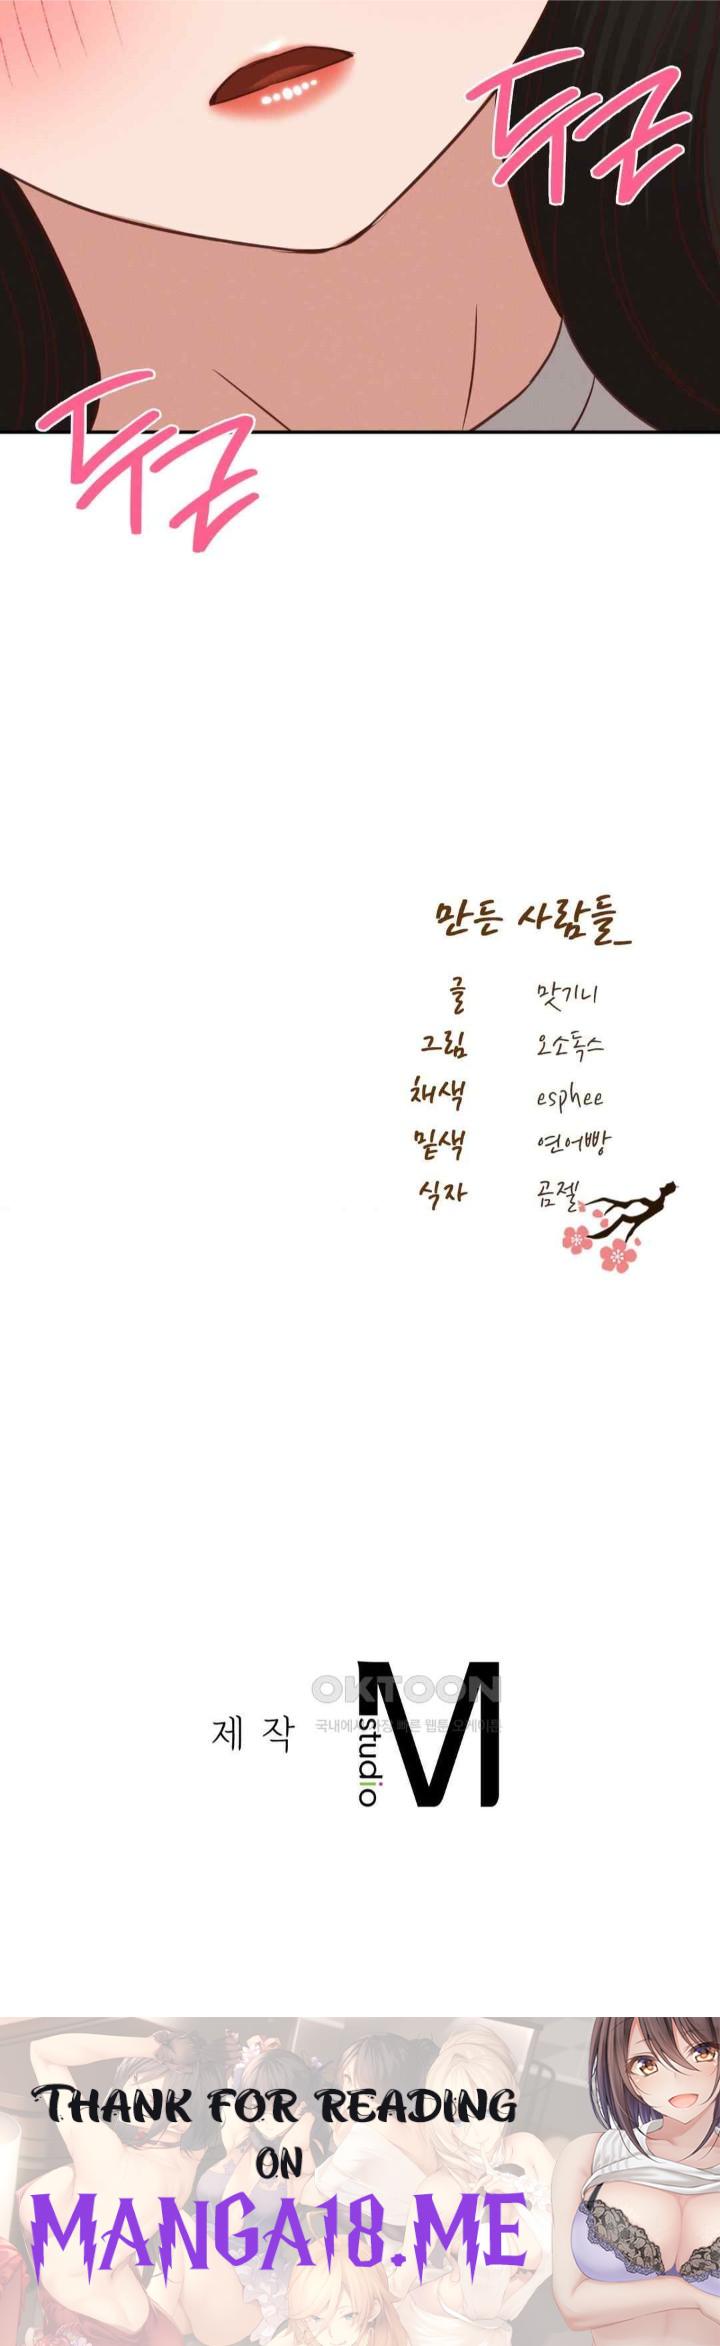 두근
두근
만든 사람들_
글 맛기니
그림 오소독스
채색 esphee
밑색 연어빵
식자 곰젤
OKTOON
국내에서 가장 빠른 웹툰 오케이툰
제작
studio
M
THANK FOR READING
ON
MANGA18.ME